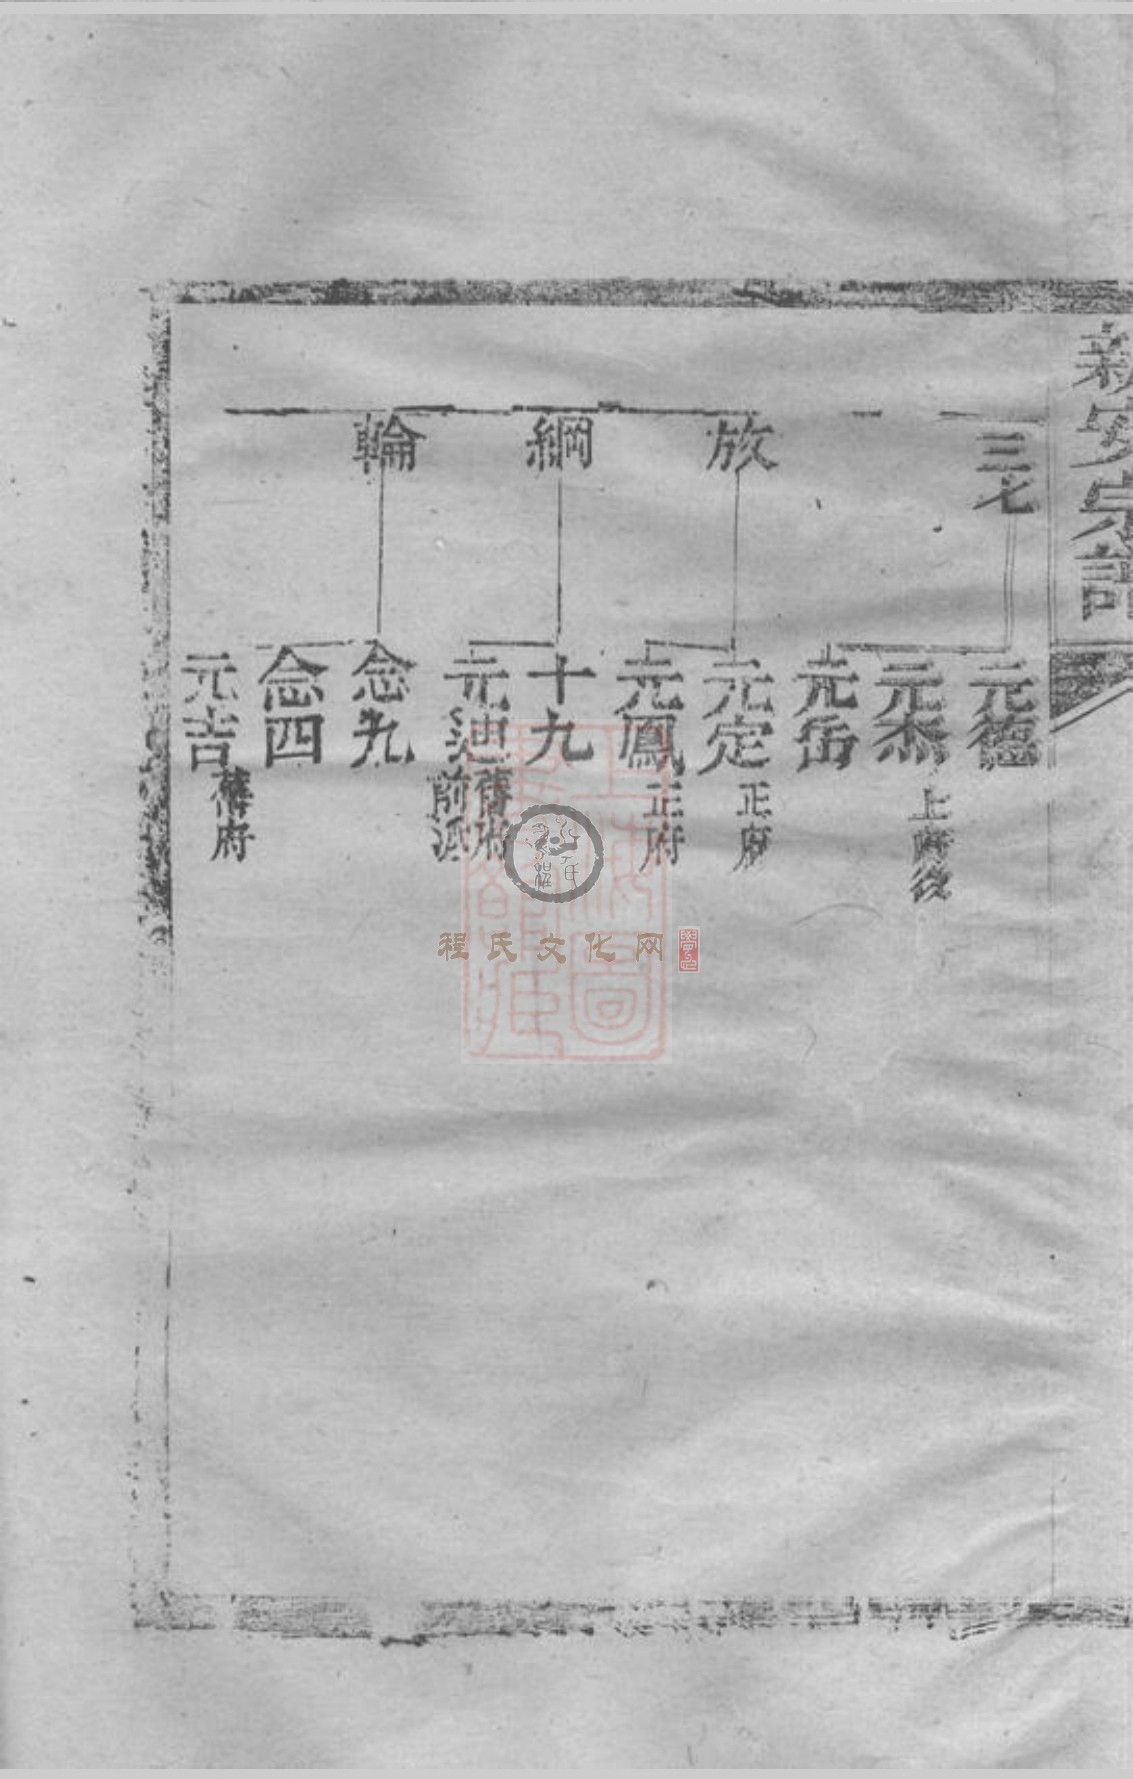 新安宗譜
三七
放
綱
輪
元德
元杰
上府後
元缶
元定
正府
元鳳
正府
十九
元迪
舊府
前派
念九
念四
元吉
舊府
程氏文化网